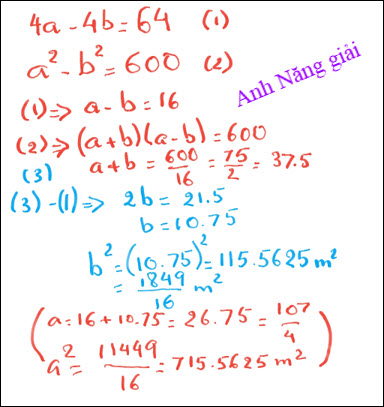 4a - 4b = 64 (1)
a² - b² = 600 (2)
Anh Năng giải
(1) => a - b = 16
(2) => (a+b)(a-b) = 600
(3) a + b = 600/16 = 75/2 = 37.5
(3) - (1) => 2b = 21.5
b = 10.75
b² = (10.75)² = 115.5625 m²
= 1849/16 m²
(a = 16 + 10.75 = 26.75 = 107/4
a² = 11449/16 = 715.5625 m²)